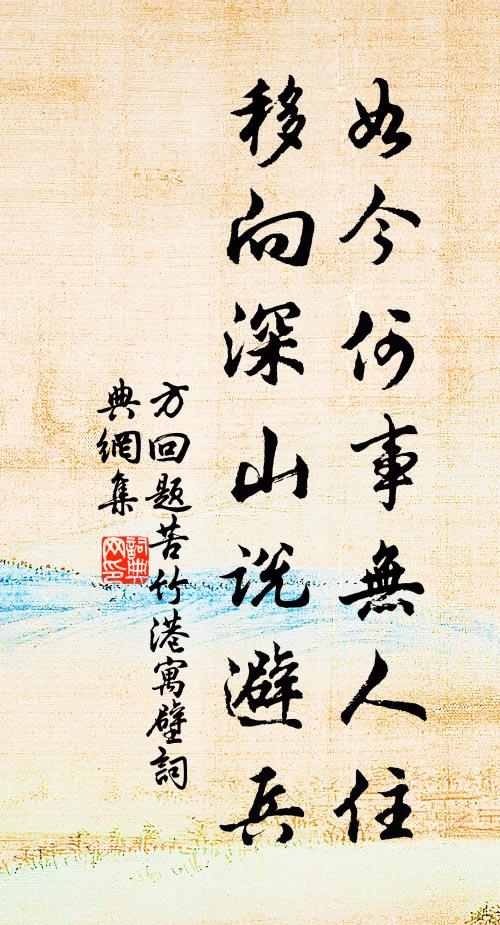 如今何事無人住
移向深山説避兵
方回題苦竹港寓壁詞
典網集
詞典
网印